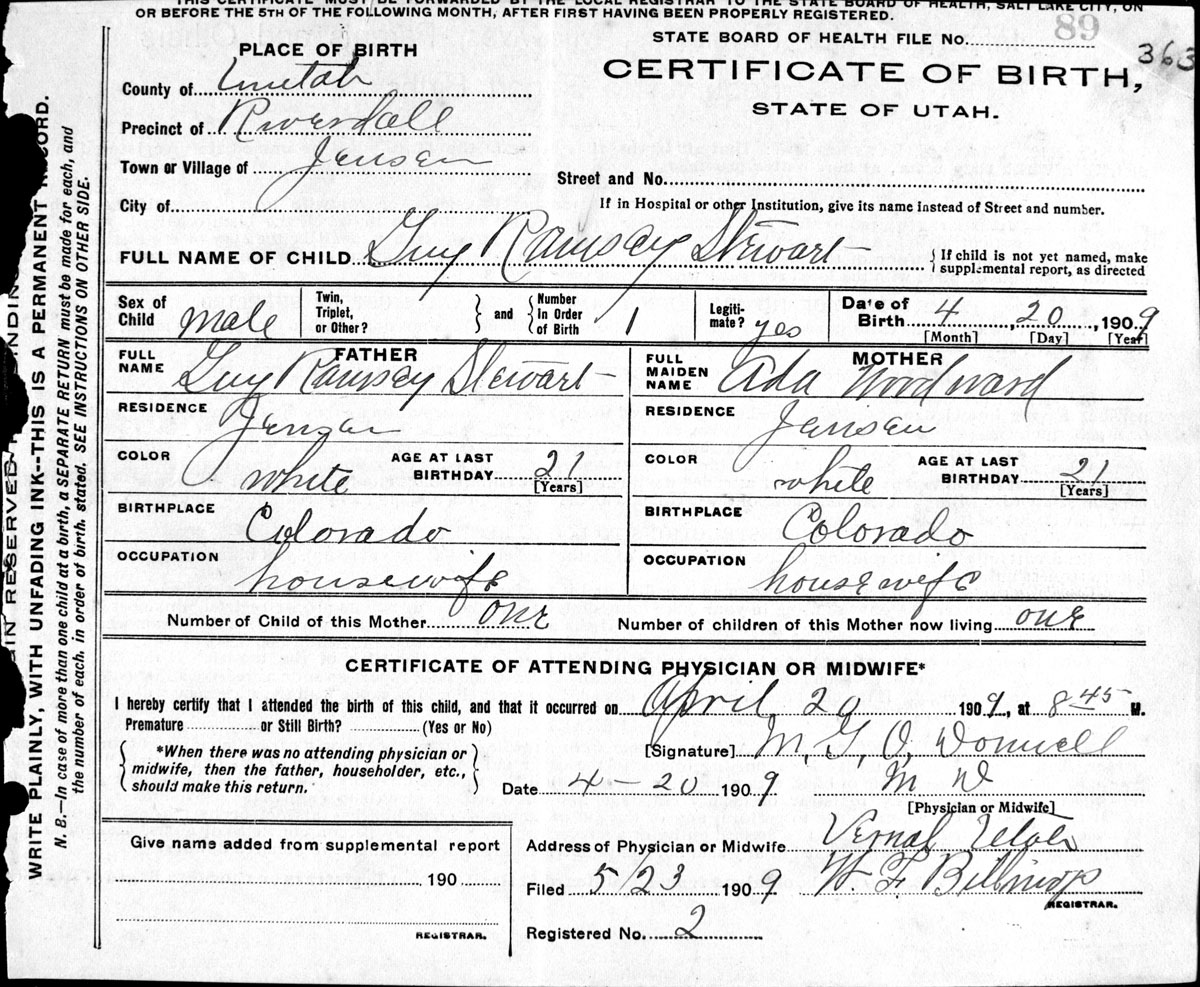 THIS CERTIFICATE MUST BE FORWARDED BY THE LOCAL REGISTRAR TO THE STATE BOARD OF HEALTH, SALT LAKE CITY, ON
OR BEFORE THE 5TH OF THE FOLLOWING MONTH, AFTER FIRST HAVING BEEN PROPERLY REGISTERED.
STATE BOARD OF HEALTH FILE No. 89
363
PLACE OF BIRTH
CERTIFICATE OF BIRTH,
STATE OF UTAH.
County of Uintah
Precinct of Riverdale
Town or Village of Jensen
Street and No.
City of
If in Hospital or other Institution, give its name instead of Street and number.
FULL NAME OF CHILD Guy Ramsey Stewart
If child is not yet named, make supplemental report, as directed
Sex of Child male
Twin, Triplet, or Other?
and
Number In Order of Birth 1
Legiti-mate? yes
Date of Birth 4, 20, 1909
[Month] [Day] [Year]
FATHER
FULL NAME Guy Ramsey Stewart
RESIDENCE Jensen
COLOR white
AGE AT LAST BIRTHDAY 21
[Years]
BIRTHPLACE Colorado
OCCUPATION housewife
MOTHER
FULL MAIDEN NAME Ada Woodward
RESIDENCE Jensen
COLOR white
AGE AT LAST BIRTHDAY 21
[Years]
BIRTHPLACE Colorado
OCCUPATION housewife
Number of Child of this Mother one
Number of children of this Mother now living one
CERTIFICATE OF ATTENDING PHYSICIAN OR MIDWIFE*
I hereby certify that I attended the birth of this child, and that it occurred on April 20 1909, at 8 45 M.
Premature or Still Birth? (Yes or No)
*When there was no attending physician or midwife, then the father, householder, etc., should make this return.
[Signature] M. G. O. Donnell
Date 4-20 1909 M D
[Physician or Midwife]
Give name added from supplemental report
190
REGISTRAR.
Address of Physician or Midwife Vernal Utah
Filed 5/23 1909 W. F.
REGISTRAR.
Registered No. 2
WRITE PLAINLY, WITH UNFADING INK--THIS IS A PERMANENT RECORD.
N. B.—In case of more than one child at a birth, a SEPARATE RETURN must be made for each, and
the number of each, in order of birth, stated. SEE INSTRUCTIONS ON OTHER SIDE.